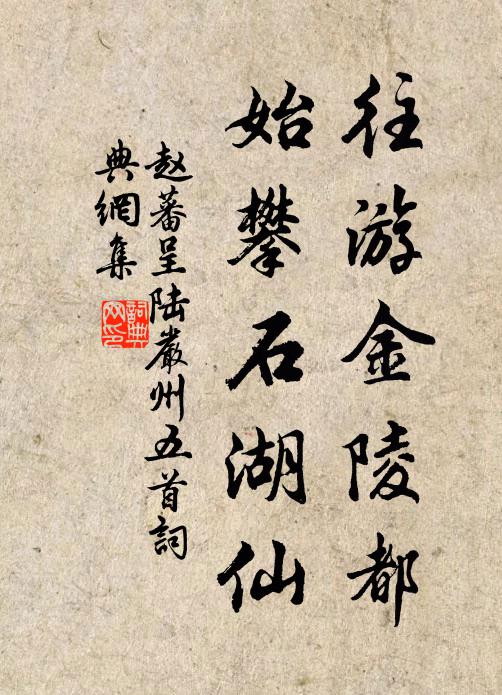 往游金陵都
始攀石湖仙
赵蕃呈陆嚴州五首詞
典網集
詞典
网印